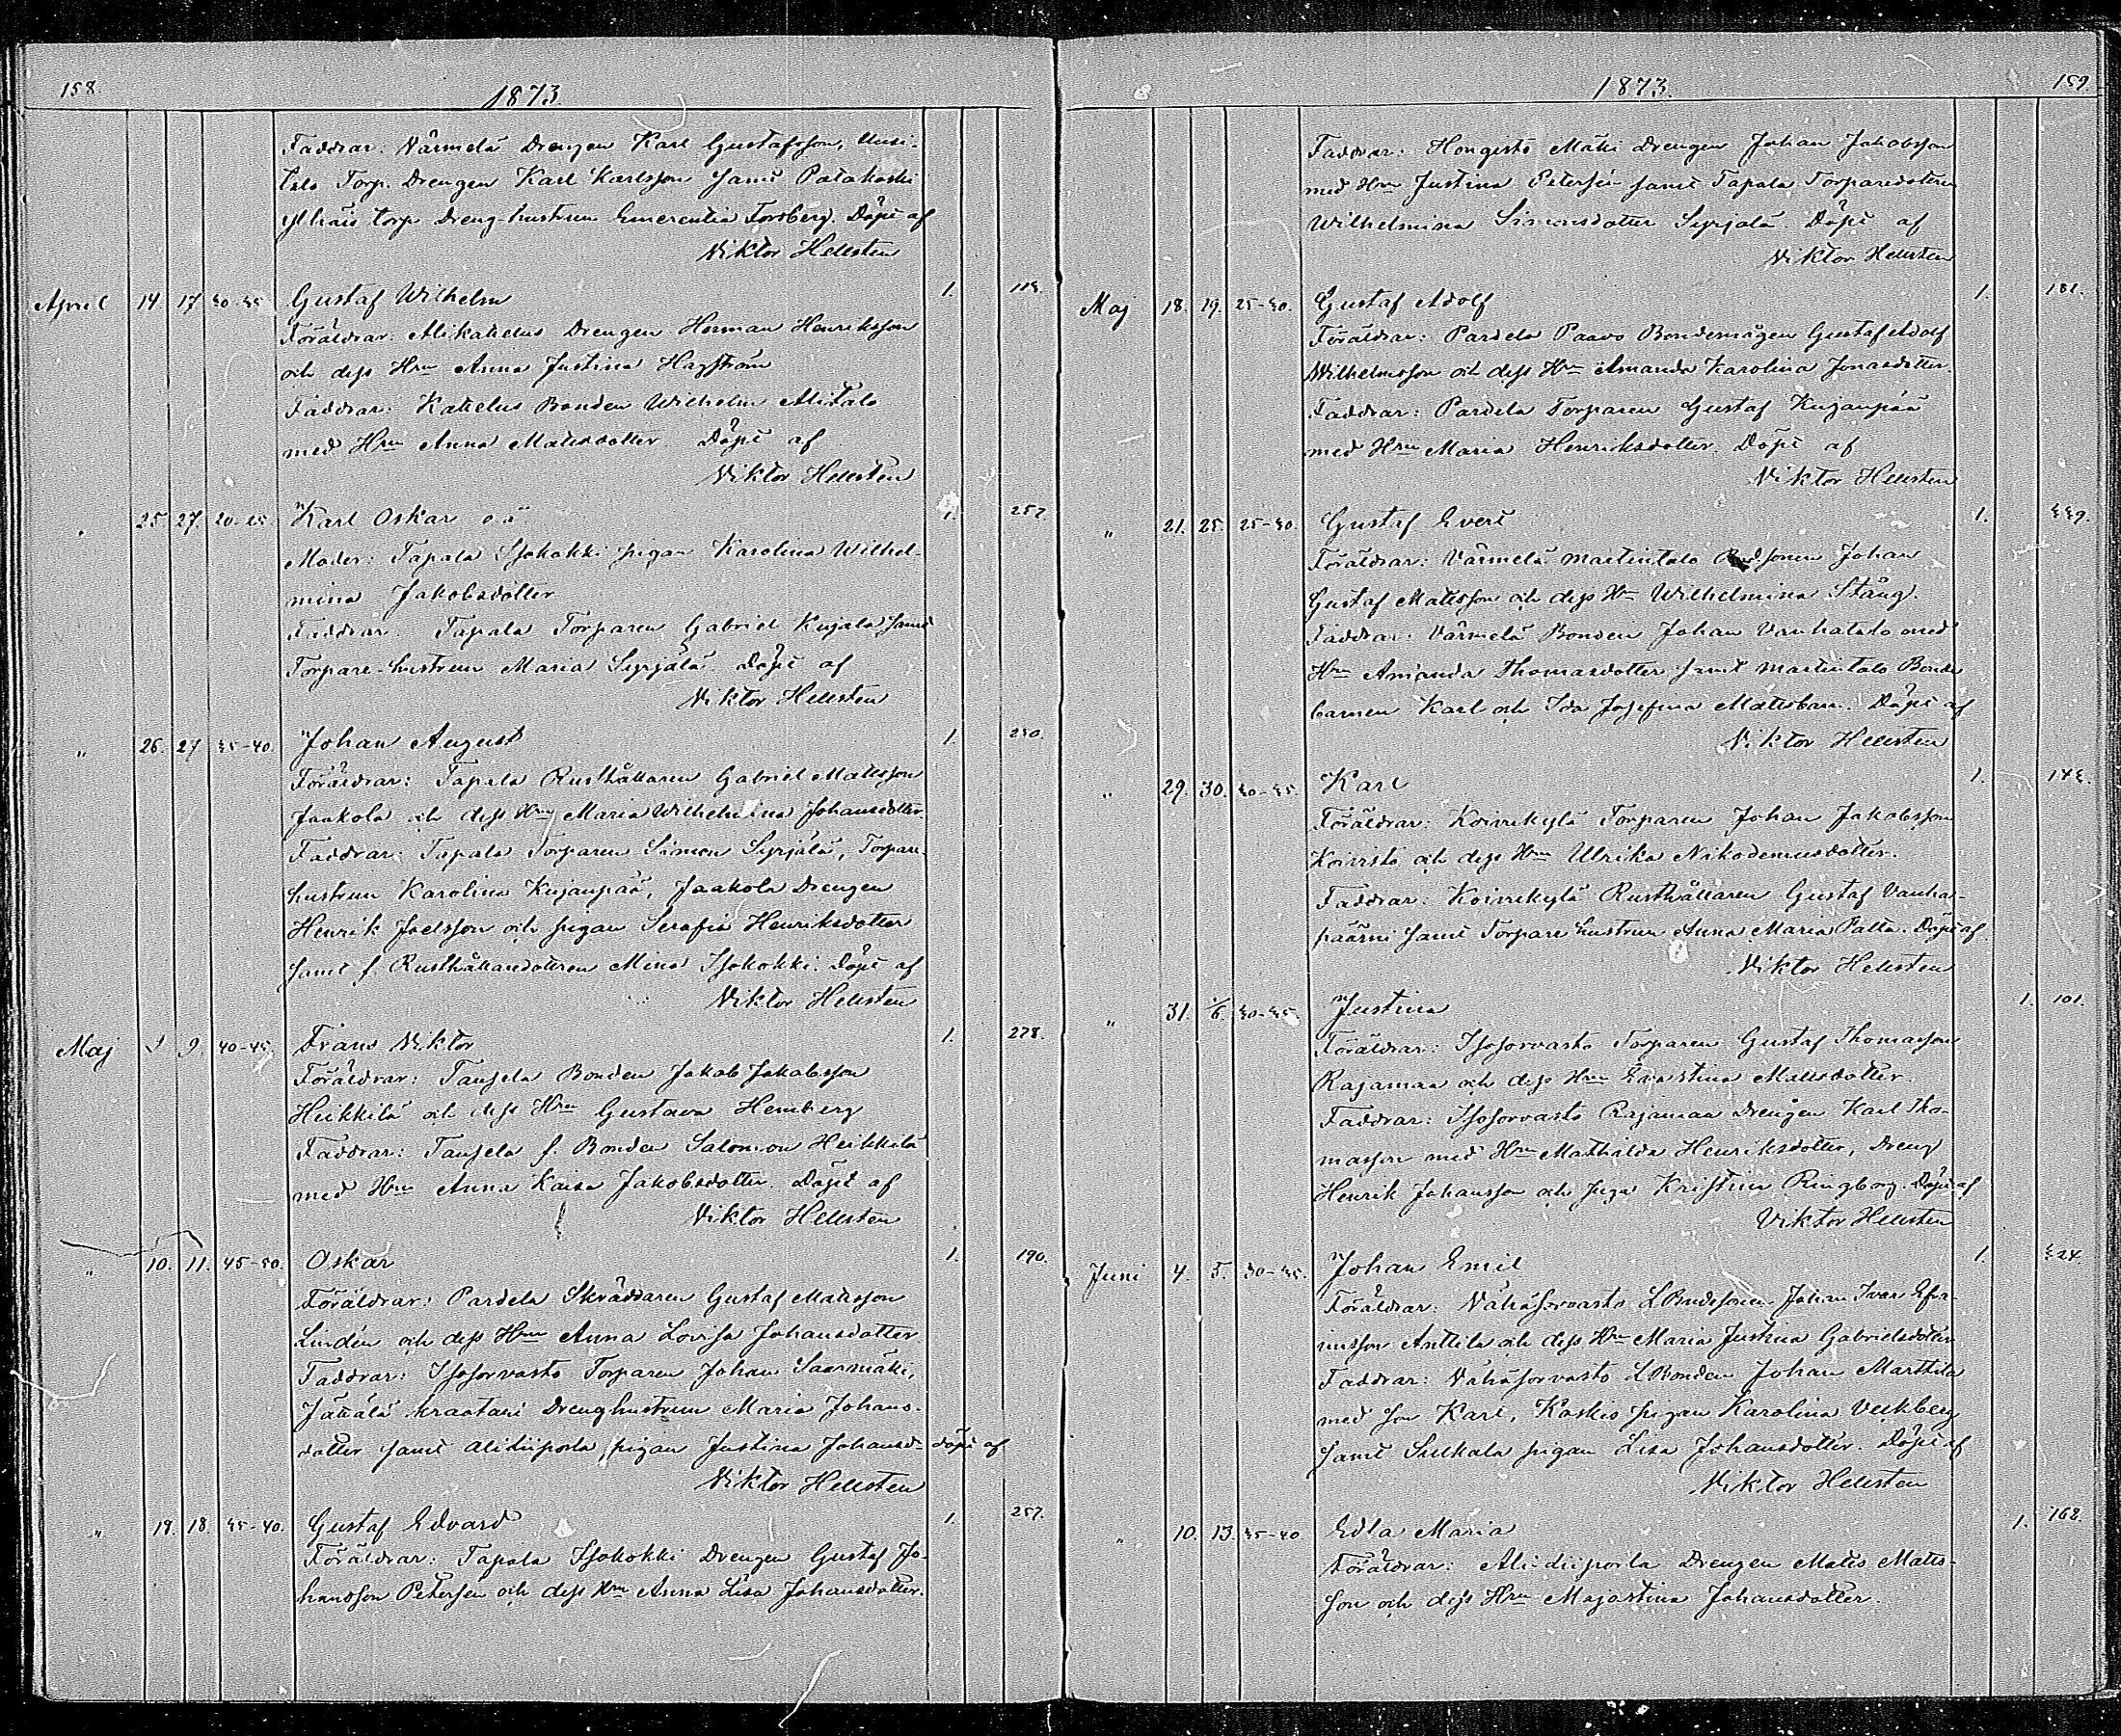 158.
1873.
Faddrar: Värmelä Drengen Karl Gustafsson, Uusi-
talo Torp. Drengen Karl Karlsson samt Patakoski
Ylhäis torp Dreng-hustrun Emerentia Forsberg. Döpt af
Viktor Hellsten
April 14. 17. 30-35 Gustaf Wilhelm 1.
Föräldrar: Alikakelus Drengen Herman Henriksson
och dess Hru Anna Justina Hagström
Faddrar: Kakelus Bonden Wilhelm Alitalo
med Hru Anna Matsdotter Döpt af
Viktor Hellsten
" 25. 27. 20-25 Karl Oskar o.ä. 1. 257.
Moder: Tapala Isokokki pigan Karolina Wilhel-
mina Jakobsdotter
Faddrar: Tapala Torparen Gabriel Kujala samt
Torpare-hustrun Maria Syrjälä. Döpt af
Viktor Hellsten
" 26. 27 35-40 Johan August 1. 250.
Föräldrar: Tapala Rusthållaren Gabriel Matsson
Jaakola och dess Hru Maria Wilhelmina Johansdotter.
Faddrar: Tapala Torparen Simon Syrjälä, Torpare-
hustrun Karolina Kujanpää, Jaakola Drengen
Henrik Joelsson och pigan Serafia Henriksdotter
samt f. Rusthållaredottren Mina Isokokki. Döpt af
Viktor Hellsten
Maj 9. 40-45 Frans Viktor 1. 278.
Föräldrar: Tanjela Bonden Jakob Jakobsson
Heikkilä och dess Hru Gustava Hemberg
Faddrar: Tanjela f. Bonden Salomon Heikkilä
med Hru Anna Kaisa Jakobsdotter. Döpt af
Viktor Hellsten
" 10. 11. 45-50. Oskar 1. 190.
Föräldrar: Pardela Skräddaren Gustaf Matsson
Lindén och dess Hru Anna Lovisa Johansdotter
Faddrar: Isosorvasto Torparen Johan Saarimäki,
Jättälä kraatari Drenghustrun Maria Johans-
dotter samt alidiiporla pigan Justina Johansd- döpt af
Viktor Hellsten
" 18. 35-40. Gustaf Edvard 1. 257.
Föräldrar: Tapala Isokokki Drengen Gustaf Jo-
hansson Petersen och dess Hru Anna Lisa Johansdotter.
1873.
159.
Faddrar: Hongisto Mäki drengen Johan Jakobsson
med Hru Justina Petersén samt Tapala Torparedottren
Wilhelmina Simonsdotter Syrjälä. Döpt af
Viktor Hellsten
Maj 18. 19. 25-30. Gustaf Adolf 1. 181.
Föräldrar: Pardela Paavo Bondemågen Gustaf Adolf
Wilhelmsson och dess Hru Amanda Karolina Jonasdotter.
Faddrar: Pardela Torparen Gustaf Kujanpää
med Hru Maria Henriksdotter. Döpt af
Viktor Hellsten
" 21. 25. 25-30. Gustaf Evert 1. 339.
Föräldrar: Värmelä Martintalo Bondsonen Johan
Gustaf Matsson och dess Hru Wilhelmina Stång.
Faddrar: Värmelä Bonden Johan Vanhatalo med
Hru Amanda Thomasdotter samt Martintalo Bonde
barnen Karl och Ida Josefina Matsbarn. Döpt af
Viktor Hellsten
" 29. 30. 30-35. Karl 1. 143.
Föräldrar: Koivukylä Torparen Johan Jakobsson
Koivisto och dess Hru Ulrika Nikodemusdotter.
Faddrar: Koivukylä Rusthållaren Gustaf Vanha-
päärni samt Torpare hustrun Anna Maria Palta. Döpt af
Viktor Hellsten
" 31. 1/6. 30-35. Justina 1. 101.
Föräldrar: Isosorvasto Torparen Gustaf Thomasson
Rajamaa och dess Hru Evastina Matsdotter.
Faddrar: Isosorvasto Rajamaa Drengen Karl Tho-
masson med Hru Mathilda Henriksdotter, Dreng
Henrik Johansson och piga Kristina Ringborg. Döpt af
Viktor Hellsten
Juni 4. 5. 30-35. Johan Emil 1. 324.
Föräldrar: Vähäsorvasto LBondesonen Johan Ivar Efra-
imsson Anttila och dess Hru Maria Justina Gabrielsdotter
Faddrar: Vähäsorvasto LBonden Johan Marttila
med son Karl, Koskis pigan Karolina Veckberg
samt Sulkala pigan Lisa Johansdotter. Döpt af
Viktor Hellsten
" 10. 13. 35-40 Edla Maria 1. 162.
Föräldrar: Ali-diiporla Drengen Mats Mats-
son och dess Hru Majastina Johansdotter.